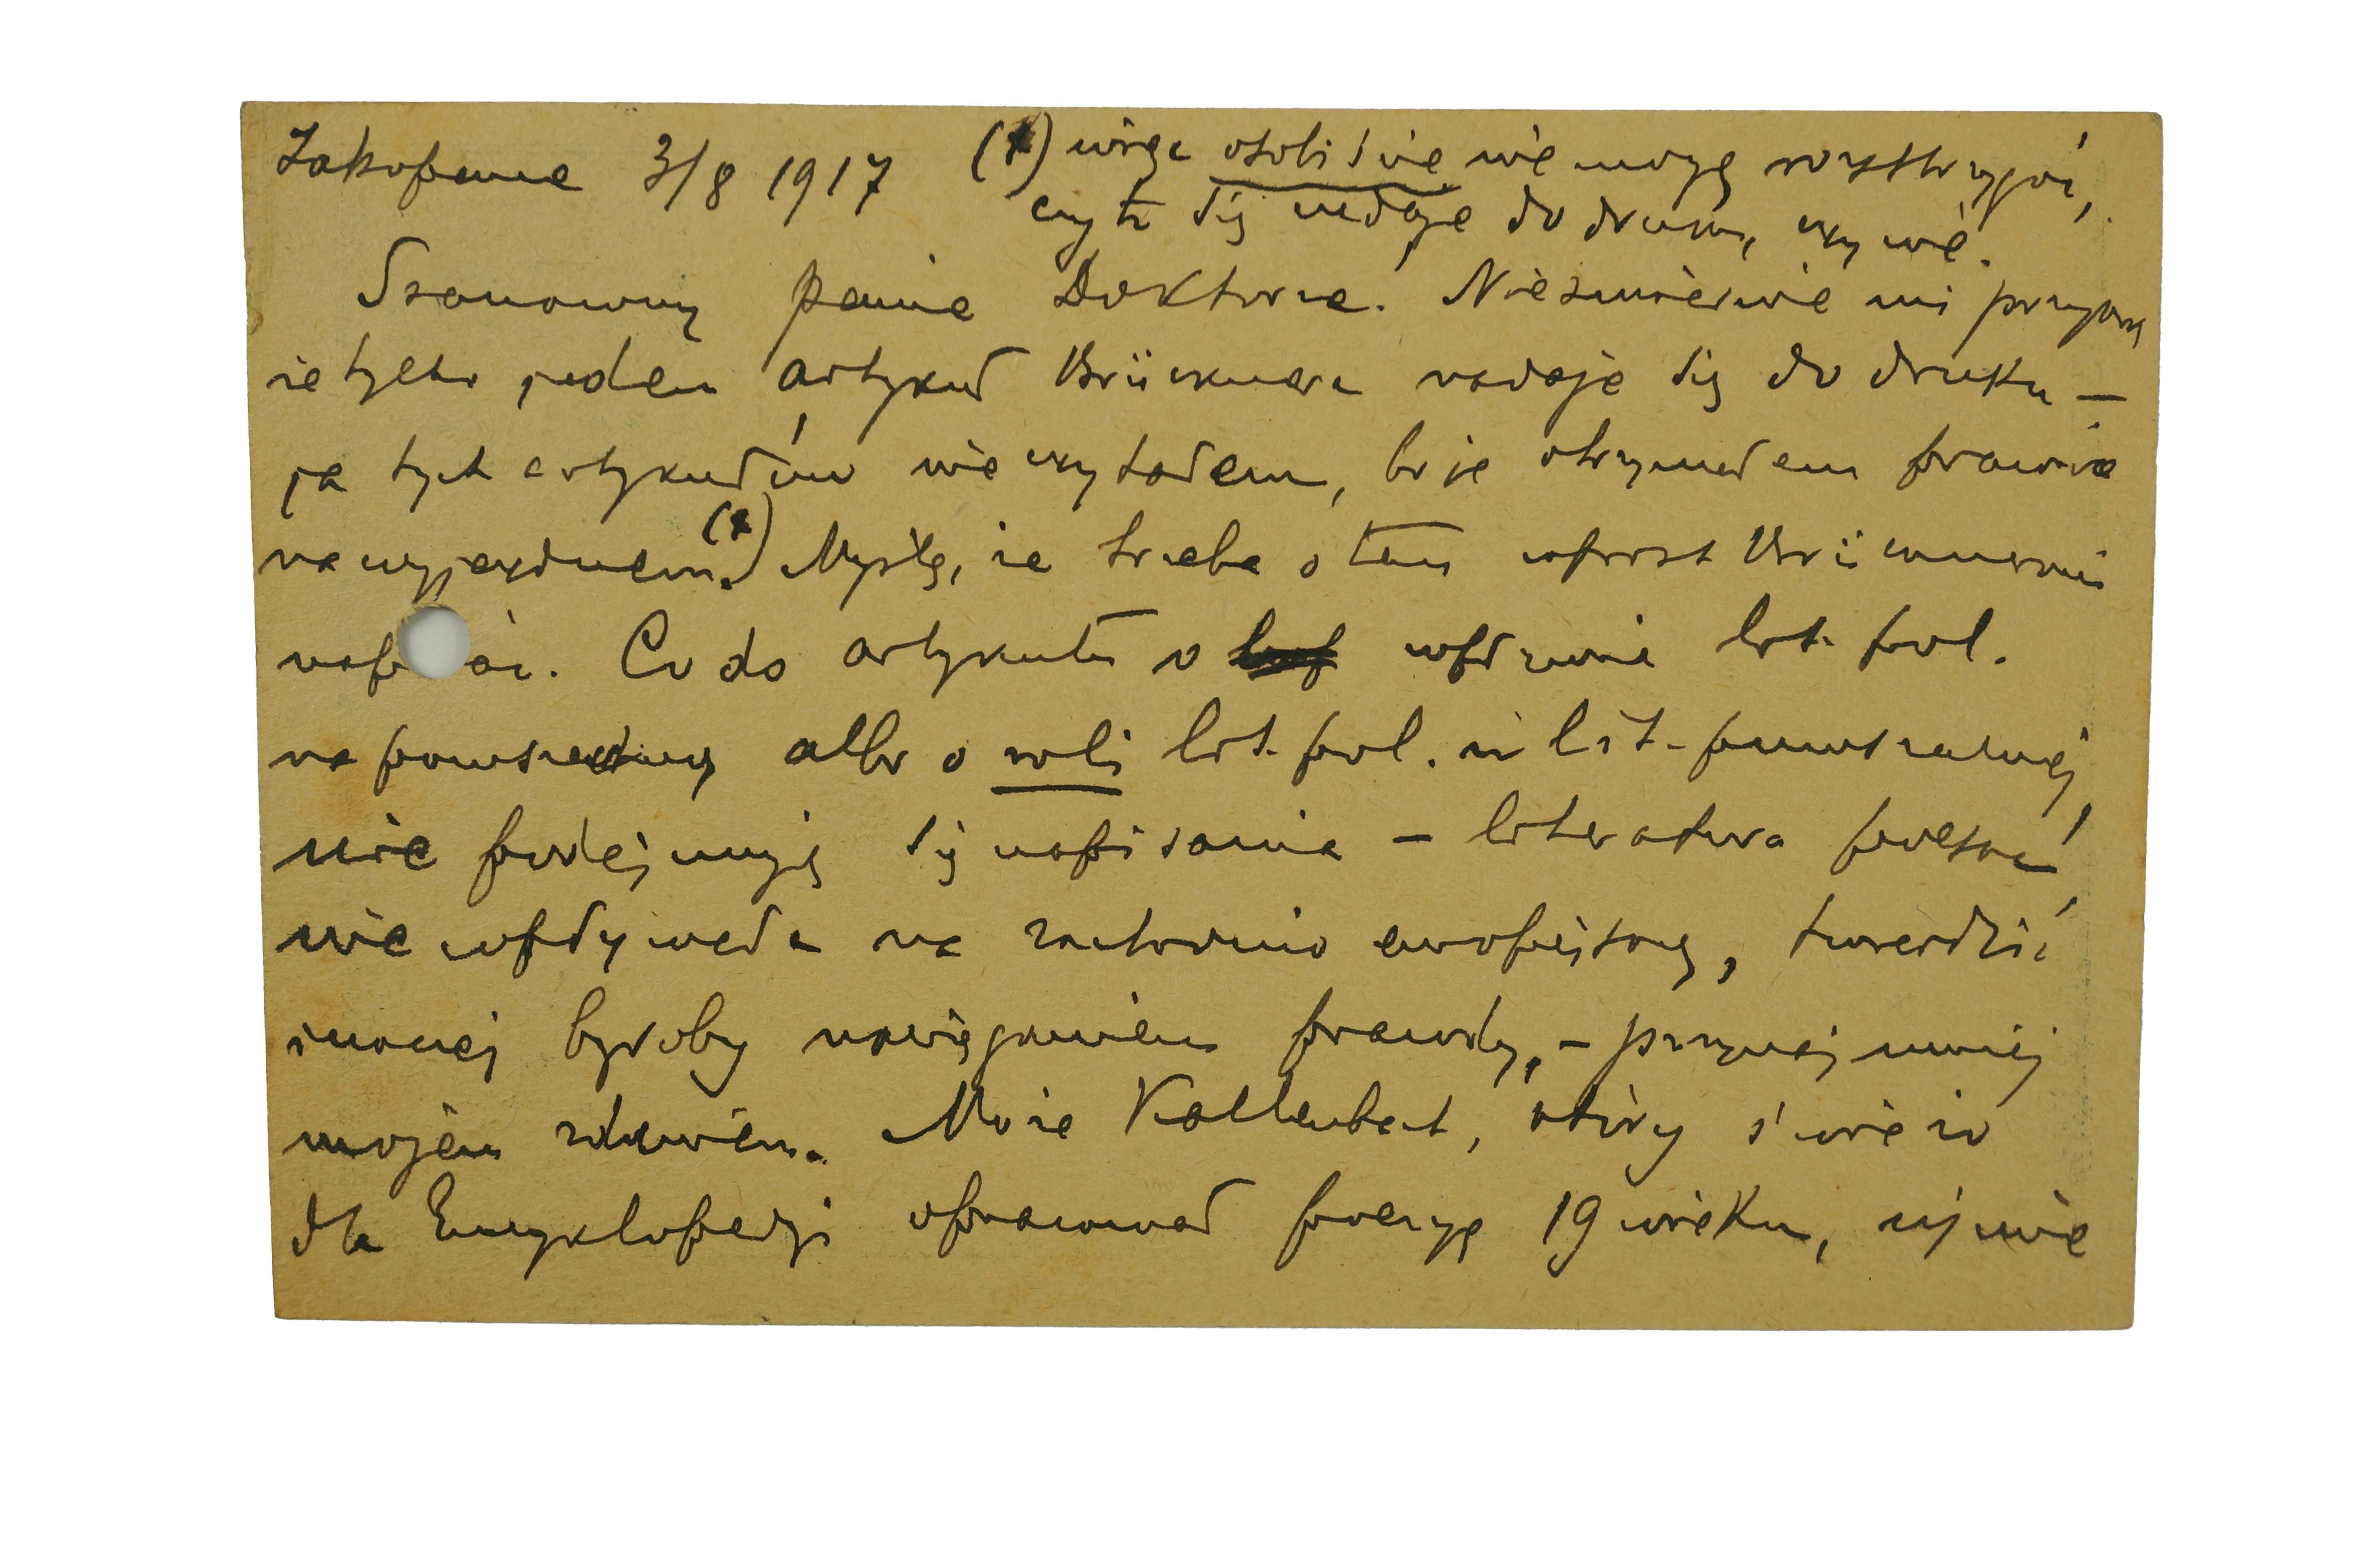 Zakopane 3/8 1917
(*) więc osobiście nie mogę rozstrzygać,
czy to się nadaje do druku, czy nie.
Szanowny panie Doktorze. Niezmiernie mi przykro,
że tylko jeden artykuł Brücknera nadaje się do druku —
ja tych artykułów nie czytałem, bo je otrzymałem prawie
na wyjezdnem.(*) Myślę, że trzeba o tem wprost Brücknerowi
nap ać. Co do artykułu o wpływie lit. pol.
na powszechną albo o roli lit. pol. w lit. powszechnej,
nie podejmuję się napisania — literatura polska
nie wpływała na zachodnio europejską, twierdzić
inaczej byłoby naciąganiem prawdy, — przynajmniej
mojem zdaniem. Może Kallenbach, który świeżo
dla Encyklopedji opracował poezyę 19 wieku, ujmie